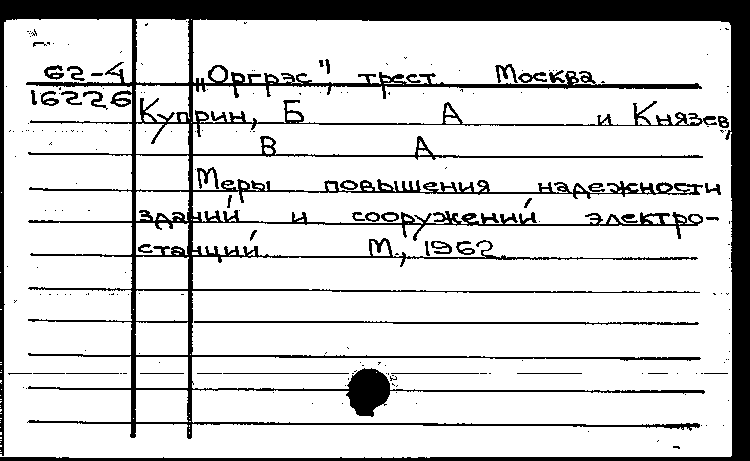 62-4 „Оргрэс", трест. Москва.
16226 Куприн, Б А и Князев,
В А
Меры повышения надежности
зданий и сооружений электро-
станций. М., 1962.